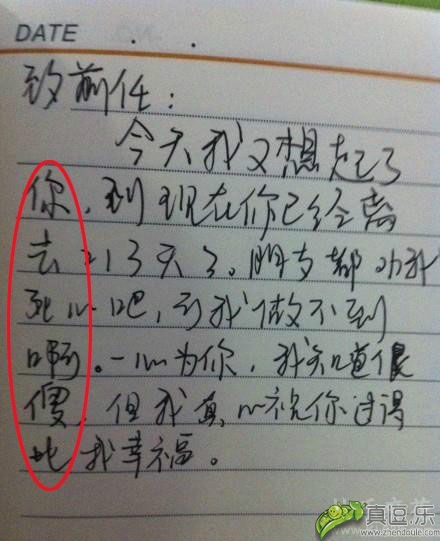 DATE . .
致前任：
今天我又想起了
你，到现在你已经离
去213天了。朋友都劝我
死心吧，可我做不到
啊。一心为你，我知道很
傻，但我真心祝你过得
比我幸福。
真逗乐
www.zhendoule.com